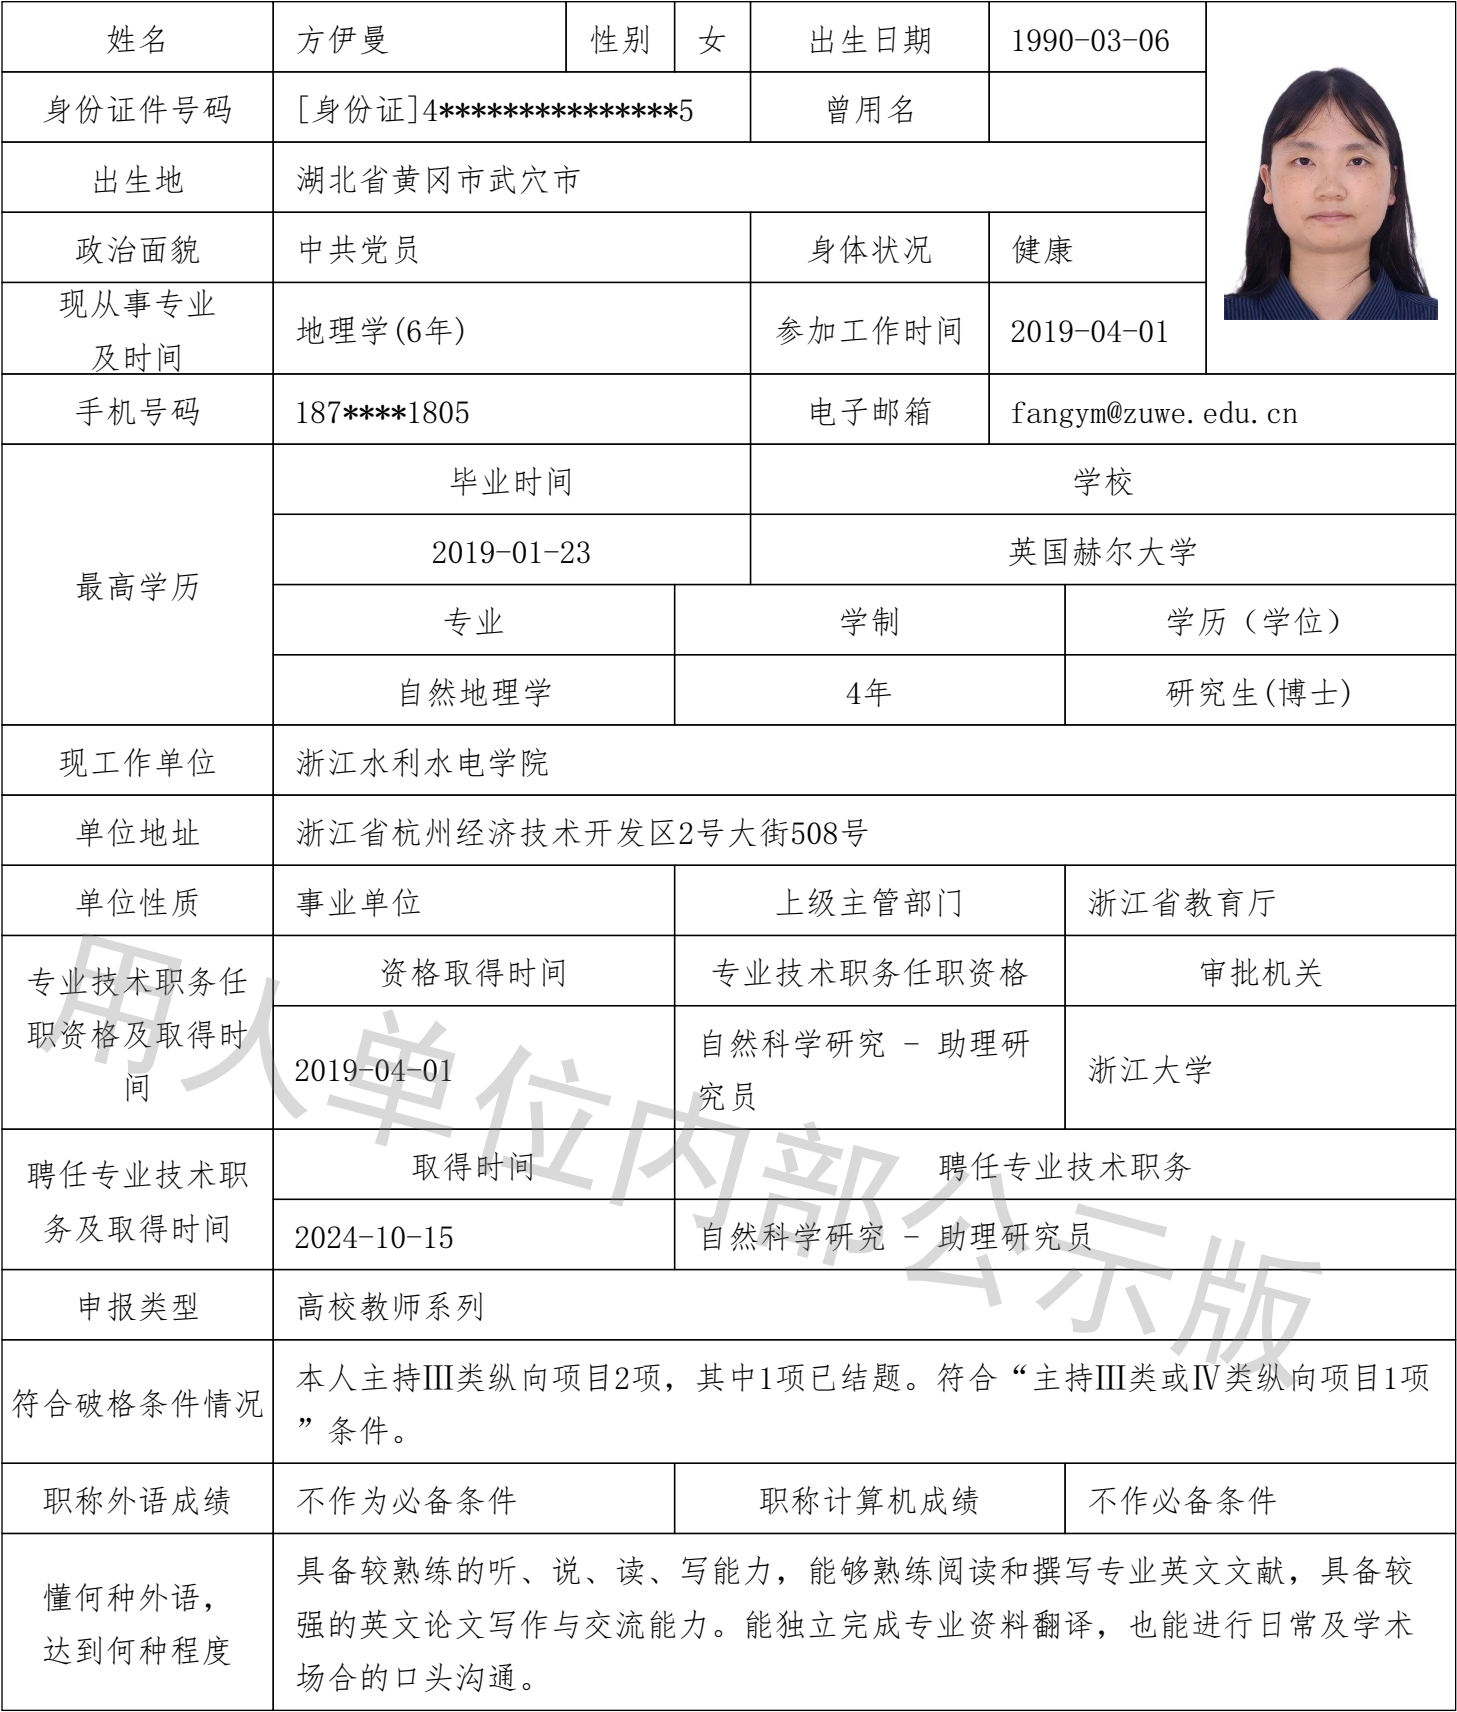 姓名 方伊曼 性别 女 出生日期 1990-03-06
身份证件号码 [身份证]4***************5 曾用名
出生地 湖北省黄冈市武穴市
政治面貌 中共党员 身体状况 健康
现从事专业
及时间
地理学(6年) 参加工作时间 2019-04-01
手机号码 187****1805 电子邮箱 fangym@zuwe.edu.cn
最高学历
毕业时间 学校
2019-01-23 英国赫尔大学
专业 学制 学历（学位）
自然地理学 4年 研究生(博士)
现工作单位 浙江水利水电学院
单位地址 浙江省杭州经济技术开发区2号大街508号
单位性质 事业单位 上级主管部门 浙江省教育厅
专业技术职务任
职资格及取得时
间
资格取得时间 专业技术职务任职资格 审批机关
2019-04-01
自然科学研究 - 助理研
究员
浙江大学
聘任专业技术职
务及取得时间
取得时间 聘任专业技术职务
2024-10-15 自然科学研究 - 助理研究员
申报类型 高校教师系列
符合破格条件情况
本人主持Ⅲ类纵向项目2项，其中1项已结题。符合“主持Ⅲ类或Ⅳ类纵向项目1项
”条件。
职称外语成绩 不作为必备条件 职称计算机成绩 不作必备条件
懂何种外语，
达到何种程度
具备较熟练的听、说、读、写能力，能够熟练阅读和撰写专业英文文献，具备较
强的英文论文写作与交流能力。能独立完成专业资料翻译，也能进行日常及学术
场合的口头沟通。
用人单位内部公示版